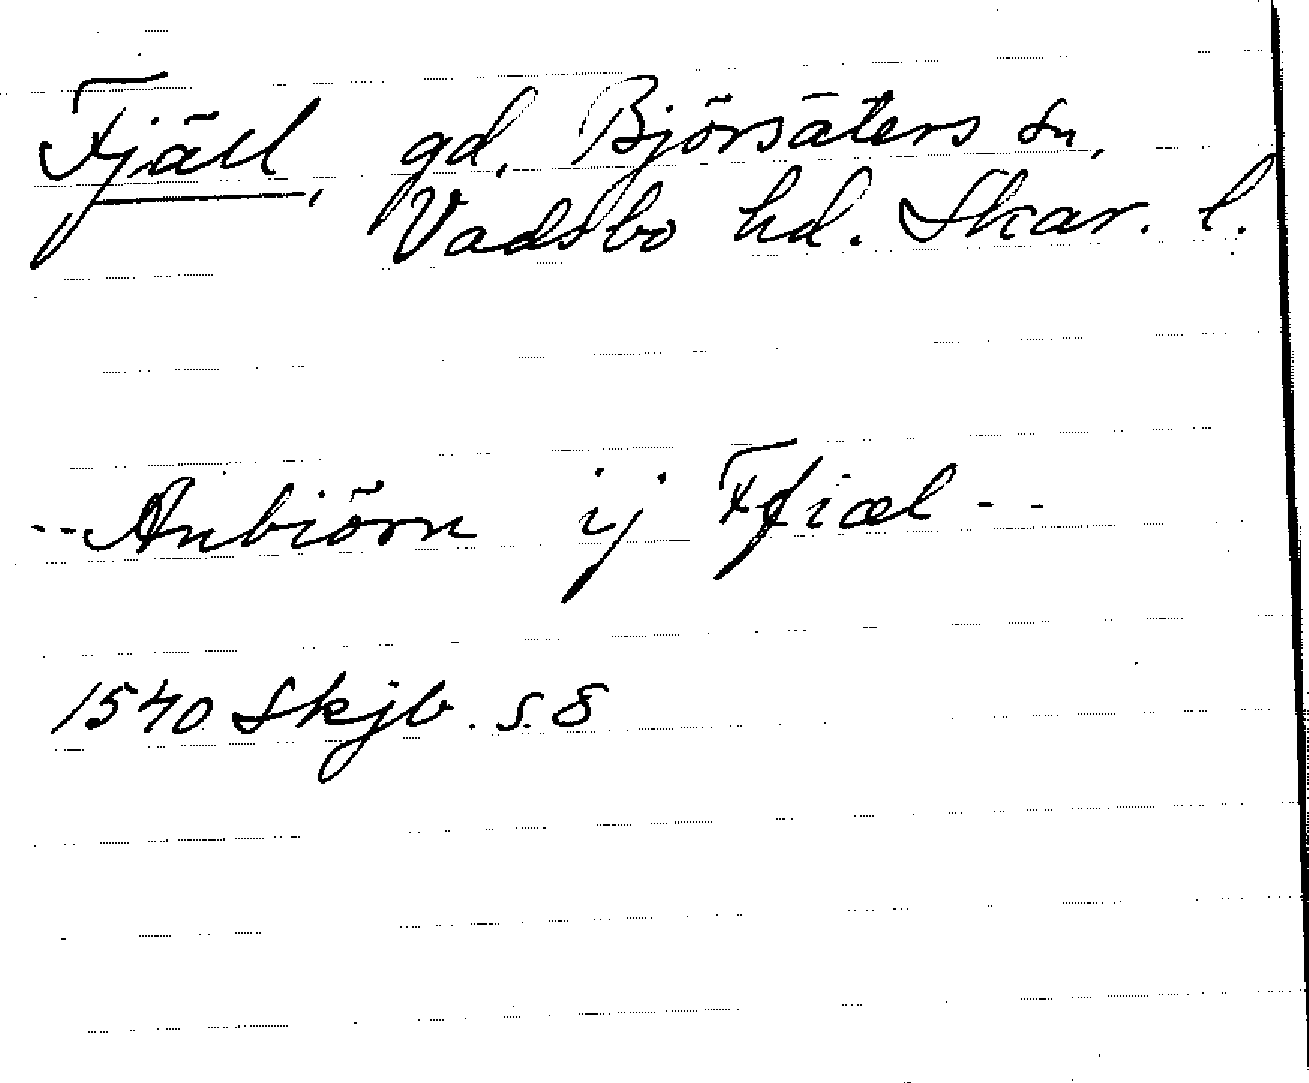 Fjäll, gd, Björsäters sn,
Vadsbo hd. Skar. l.
--Anbiörn ij Ffiæl--
1540 Skjb. s. 8